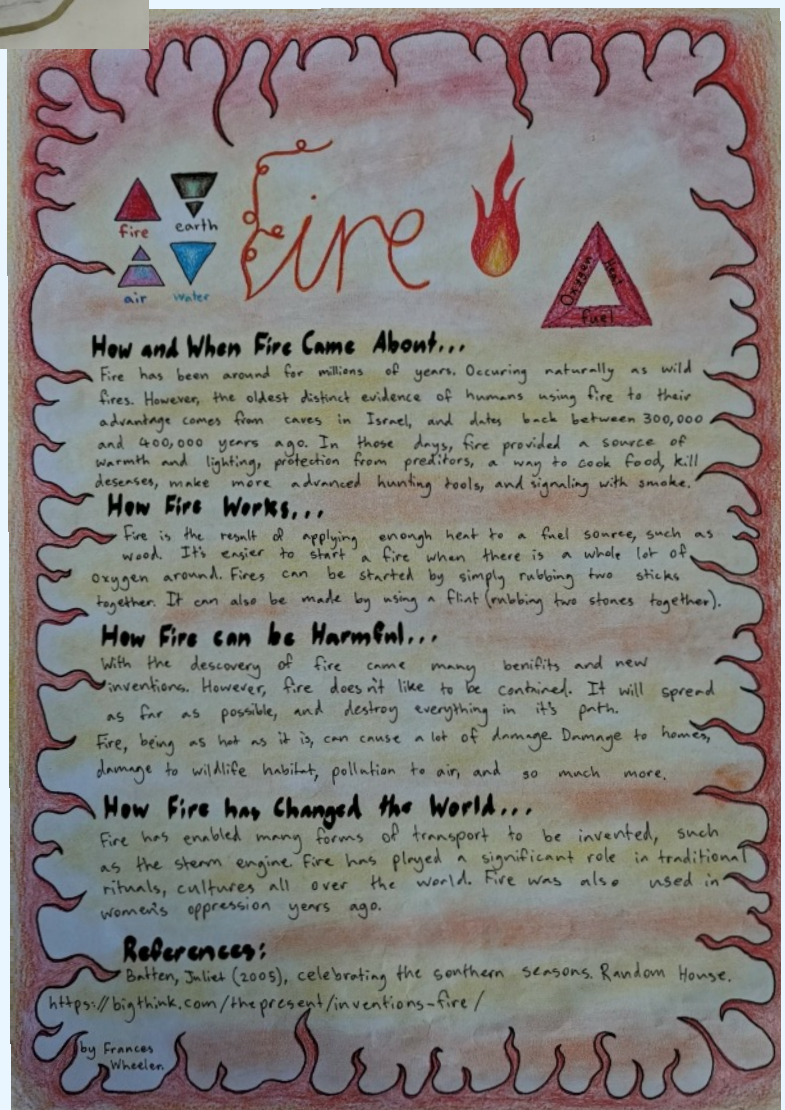 Fire
fire
earth
air
water
Oxygen
Heat
fuel
How and When Fire Came About...
Fire has been around for millions of years. Occuring naturally as wild
fires. However, the oldest distinct evidence of humans using fire to their
advantage comes from caves in Israel, and dates back between 300,000
and 400,000 years ago. In those days, fire provided a source of
warmth and lighting, protection from preditors, a way to cook food, kill
deseases, make more advanced hunting tools, and signaling with smoke.
How Fire Works...
Fire is the result of applying enough heat to a fuel source, such as
wood. It's easier to start a fire when there is a whole lot of
oxygen around. Fires can be started by simply rubbing two sticks
together. It can also be made by using a flint (rubbing two stones together).
How Fire can be Harmful...
With the descovery of fire came many benifits and new
inventions. However, fire doesn't like to be contained. It will spread
as far as possible, and destroy everything in it's path.
Fire, being as hot as it is, can cause a lot of damage. Damage to homes,
damage to wildlife habitat, pollution to air, and so much more.
How Fire has Changed the World...
Fire has enabled many forms of transport to be invented, such
as the steam engine. Fire has played a significant role in traditional
rituals, cultures all over the world. Fire was also used in
women's oppression years ago.
References:
Batten, Juliet (2005), celebrating the southern seasons. Random House.
https://bigthink.com/the present/inventions-fire/
by Frances
Wheeler.